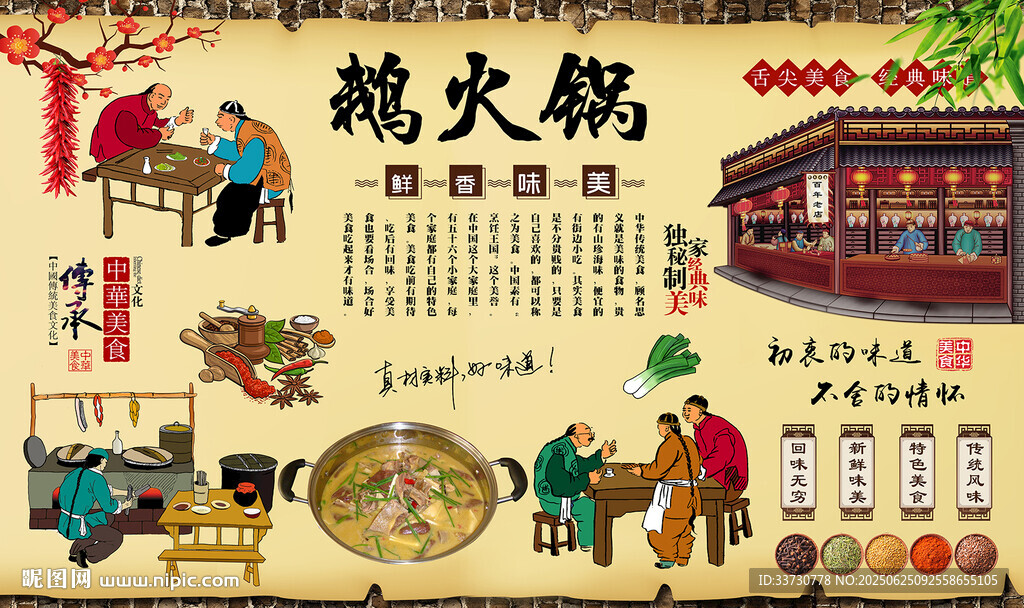 鹅火锅
舌尖美食 经典味道
鲜香味美
百年老店
中华传统美食,顾名思
义就是美味的食物,贵
的有山珍海味,便宜的
有街边小吃。其实美食
是不分贵贱的,只要是
自己喜欢的,都可以称
之为美食。中国素有“
烹饪王国”这个美誉。
在中国这个大家庭里,
有五十六个小家庭,每
个家庭都有自己的特色
美食。美食吃前有期待
、吃后有回味,享受美
食也要看场合,场合好
美食吃起来才有味道。
独家经典味
秘制美
中華美食
文化
傳承
【中國傳統美食文化】
中华美食
真材实料,好味道!
初衷的味道
中华美食
不舍的情怀
回味无穷
新鲜味美
特色美食
传统风味
昵图网 www.nipic.com
ID:33730778 NO:20250625092558655105